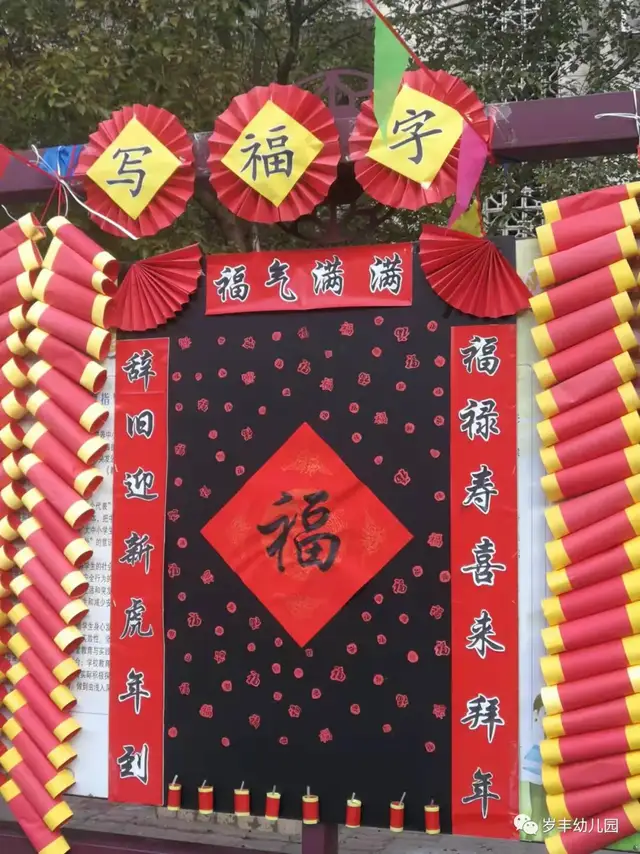 写福字
福气满满
福禄寿喜来拜年
福
辞旧迎新虎年到
岁丰幼儿园